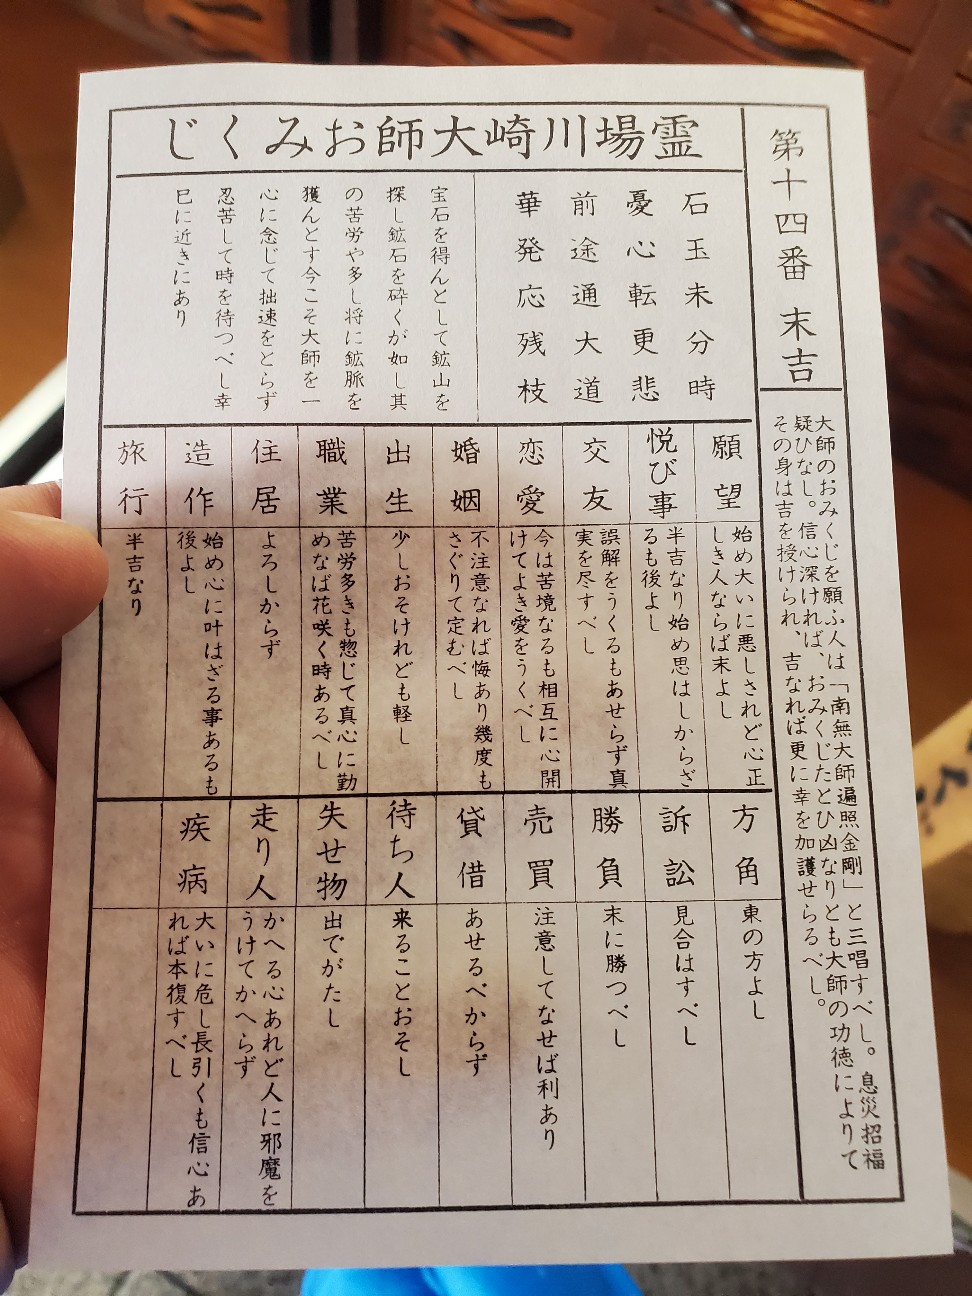 第十四番 末吉
大師のおみくじを願ふ人は「南無大師遍照金剛」と三唱すべし。息災招福
疑ひなし。信心深ければ、おみくじたとひ凶なりとも大師の功徳によりて
その身は吉を授けられ、吉なれば更に幸を加護せらるべし。
霊場川崎大師おみくじ
石玉未分時
憂心転更悲
前途通大道
華発応残枝
宝石を得んとして鉱山を
探し鉱石を砕くが如し其
の苦労や多し将に鉱脈を
獲んとす今こそ大師を一
心に念じて拙速をとらず
忍苦して時を待つべし幸
巳に近きにあり
願望
始め大いに悪しされど心正
しき人ならば末よし
悦び事
半吉なり始め思はしからざ
るも後よし
交友
誤解をうくるもあせらず真
実を尽すべし
恋愛
今は苦境なるも相互に心開
けてよき愛をうくべし
婚姻
不注意なれば悔あり幾度も
さぐりて定むべし
出生
少しおそけれども軽し
職業
苦労多きも惣じて真心に勤
めなば花咲く時あるべし
住居
よろしからず
造作
始め心に叶はざる事あるも
後よし
旅行
半吉なり
方角
東の方よし
訴訟
見合はすべし
勝負
末に勝つべし
売買
注意してなせば利あり
貸借
あせるべからず
待ち人
来ることおそし
失せ物
出でがたし
走り人
かへる心あれど人に邪魔を
うけてかへらず
疾病
大いに危し長引くも信心あ
れば本復すべし